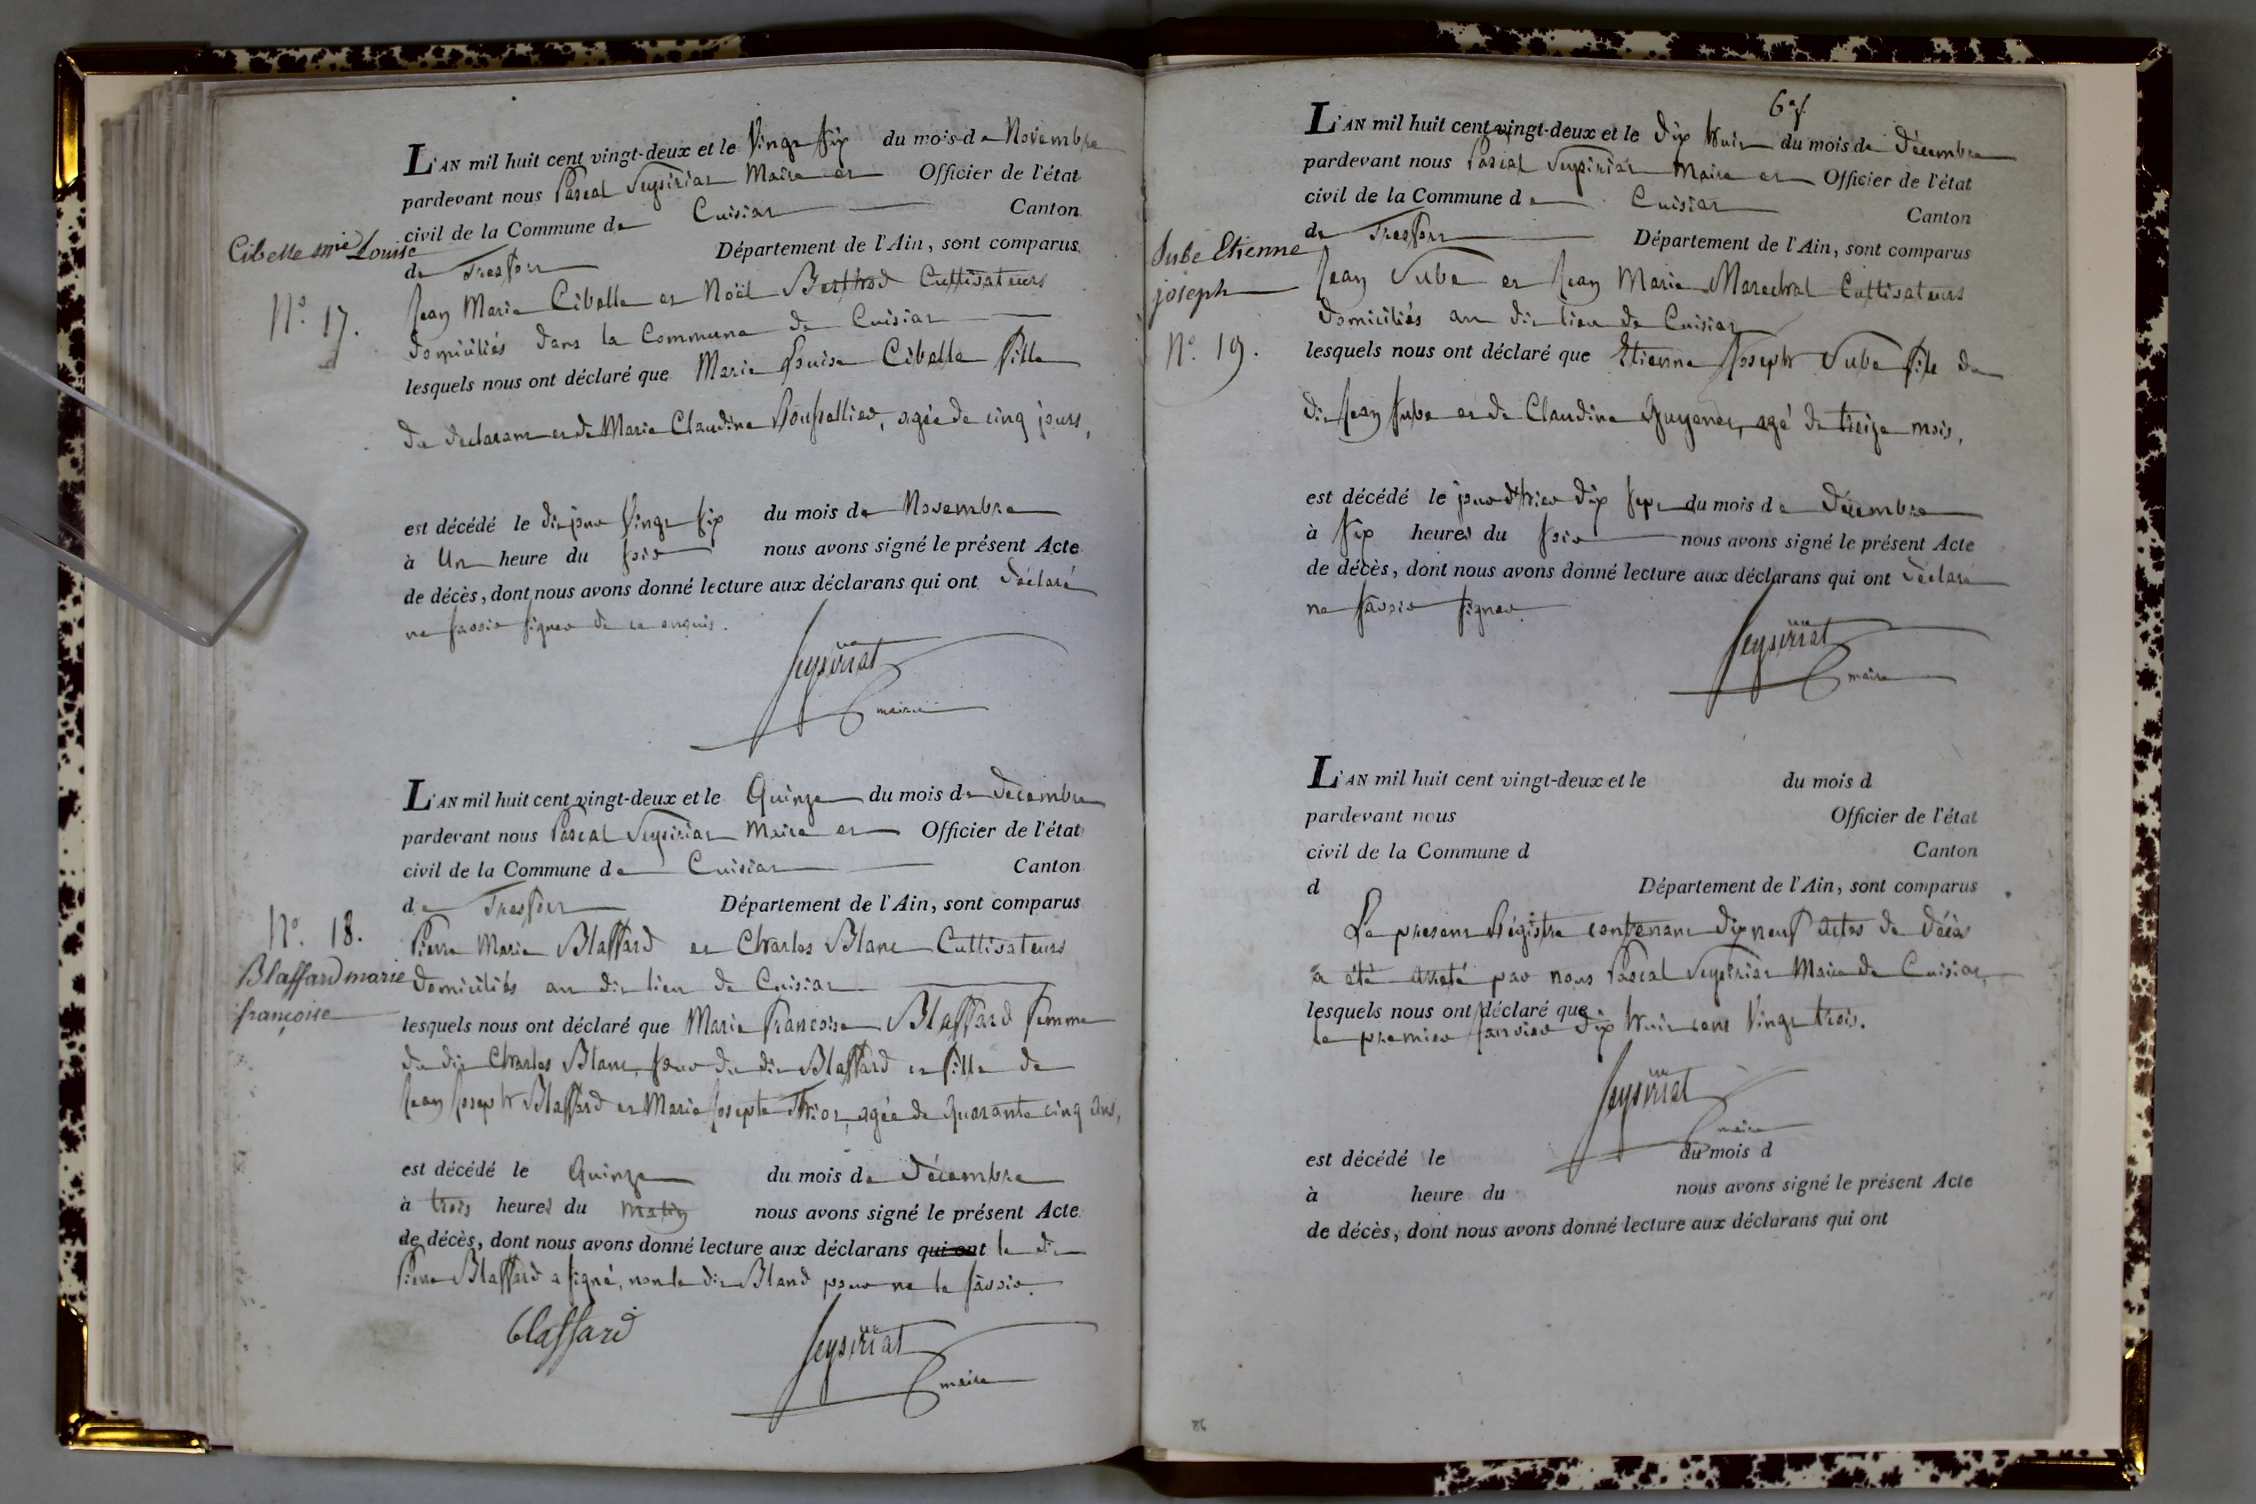 L'AN mil huit cent vingt-deux et le Vingt Six du mois de Novembre
pardevant nous Pascal Seysiriat Maire et Officier de l'état
civil de la Commune de Cuisiat Canton
de Treffort Département de l'Ain, sont comparus
Cibelle mie Louise
N.° 17.
Jean Marie Cibelle et Noël Berthod Cultivateurs
domiciliés dans la Commune de Cuisiat
lesquels nous ont déclaré que Marie Louise Cibelle fille
du declarant et de Marie Claudine, agée de cinq jours,
est décédé le dit jour Vingt Six du mois de Novembre
à Un heure du soir nous avons signé le présent Acte
de décès, dont nous avons donné lecture aux déclarans qui ont déclaré
ne savoir signer de ce enquis.
Seysiriat
maire
L'AN mil huit cent vingt-deux et le Quinze du mois de décembre
pardevant nous Pascal Seysiriat Maire et Officier de l'état
civil de la Commune de Cuisiat Canton
de Treffort Département de l'Ain, sont comparus
N.° 18.
Blaffard marie
françoise
Pierre Marie Blaffard et Charles Blanc Cultivateurs
domiciliés au dit lieu de Cuisiat
lesquels nous ont déclaré que Marie francoise Blaffard femme
du dit Charles Blanc, sœur du dit Blaffard et fille de
Jean Joseph Blaffard et Marie Josephte, agée de quarante cinq ans,
est décédé le Quinze du mois de décembre
à trois heures du matin nous avons signé le présent Acte
de décès, dont nous avons donné lecture aux déclarans qui ont le dit
Pierre Blaffard a signé, non le dit Bland pour ne le savoir.
blaffard
Seysiriat
maire
6e f.
L'AN mil huit cent vingt-deux et le dix huit du mois de décembre
pardevant nous Pascal Seysiriat Maire et Officier de l'état
civil de la Commune de Cuisiat Canton
de Treffort Département de l'Ain, sont comparus
Sube Etienne
joseph
N.° 19.
Jean Sube et Jean Marie Marechal Cultivateurs
domiciliés au dit lieu de Cuisiat
lesquels nous ont déclaré que Etienne Joseph Sube fils de
dit Jean Sube et de Claudine Guyenet, agé de treize mois,
est décédé le jour d'hier dix sept du mois de décembre
à six heures du soir nous avons signé le présent Acte
de décès, dont nous avons donné lecture aux déclarans qui ont déclaré
ne savoir signer.
Seysiriat
maire
L'AN mil huit cent vingt-deux et le du mois d
pardevant nous Officier de l'état
civil de la Commune d Canton
d Département de l'Ain, sont comparus
Le present Régistre contenant dix neuf actes de décès
a été arreté par nous Pascal Seysiriat Maire de Cuisiat
lesquels nous ont déclaré que
le premier Janvier dix huit cent Vingt trois.
Seysiriat
maire
est décédé le du mois d
à heure du nous avons signé le présent Acte
de décès, dont nous avons donné lecture aux déclarans qui ont